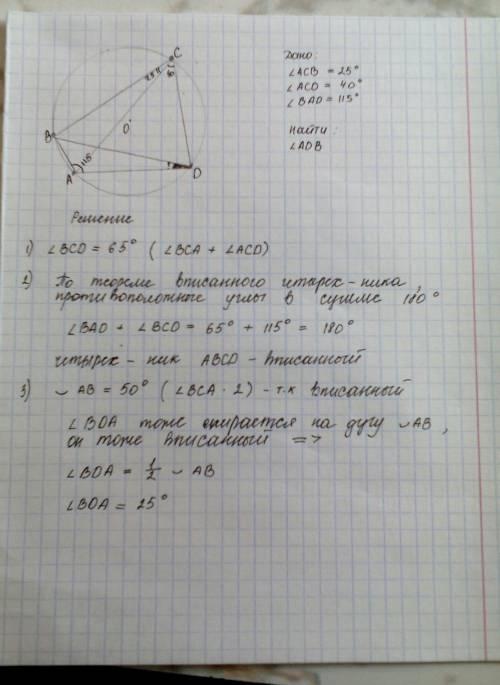 C
25
40
B
O
115
A
D
Дано:
∠ACB = 25°
∠ACD = 40°
∠BAD = 115°
Найти:
∠ADB
Решение
1) ∠BCD = 65° (∠BCA + ∠ACD)
2) По теореме вписанного четырёх-ника,
противоположные углы в сумме 180°
∠BAD + ∠BCD = 65° + 115° = 180°
четырёх-ник ABCD - вписанный
3) ◡ AB = 50° (∠BCA · 2) - т.к вписанный
∠BDA тоже опирается на дугу ◡AB,
он тоже вписанный =>
∠BDA = 1/2 ◡ AB
∠BDA = 25°